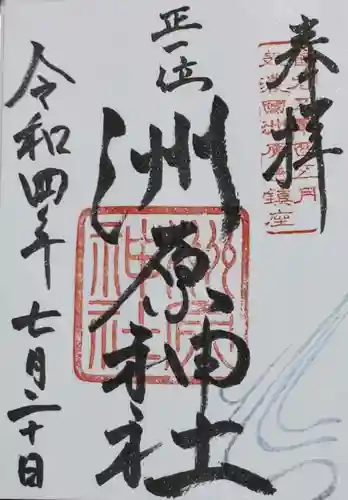 奉拝
正一位
洲原神社
洲原神社
令和四年七月二十日